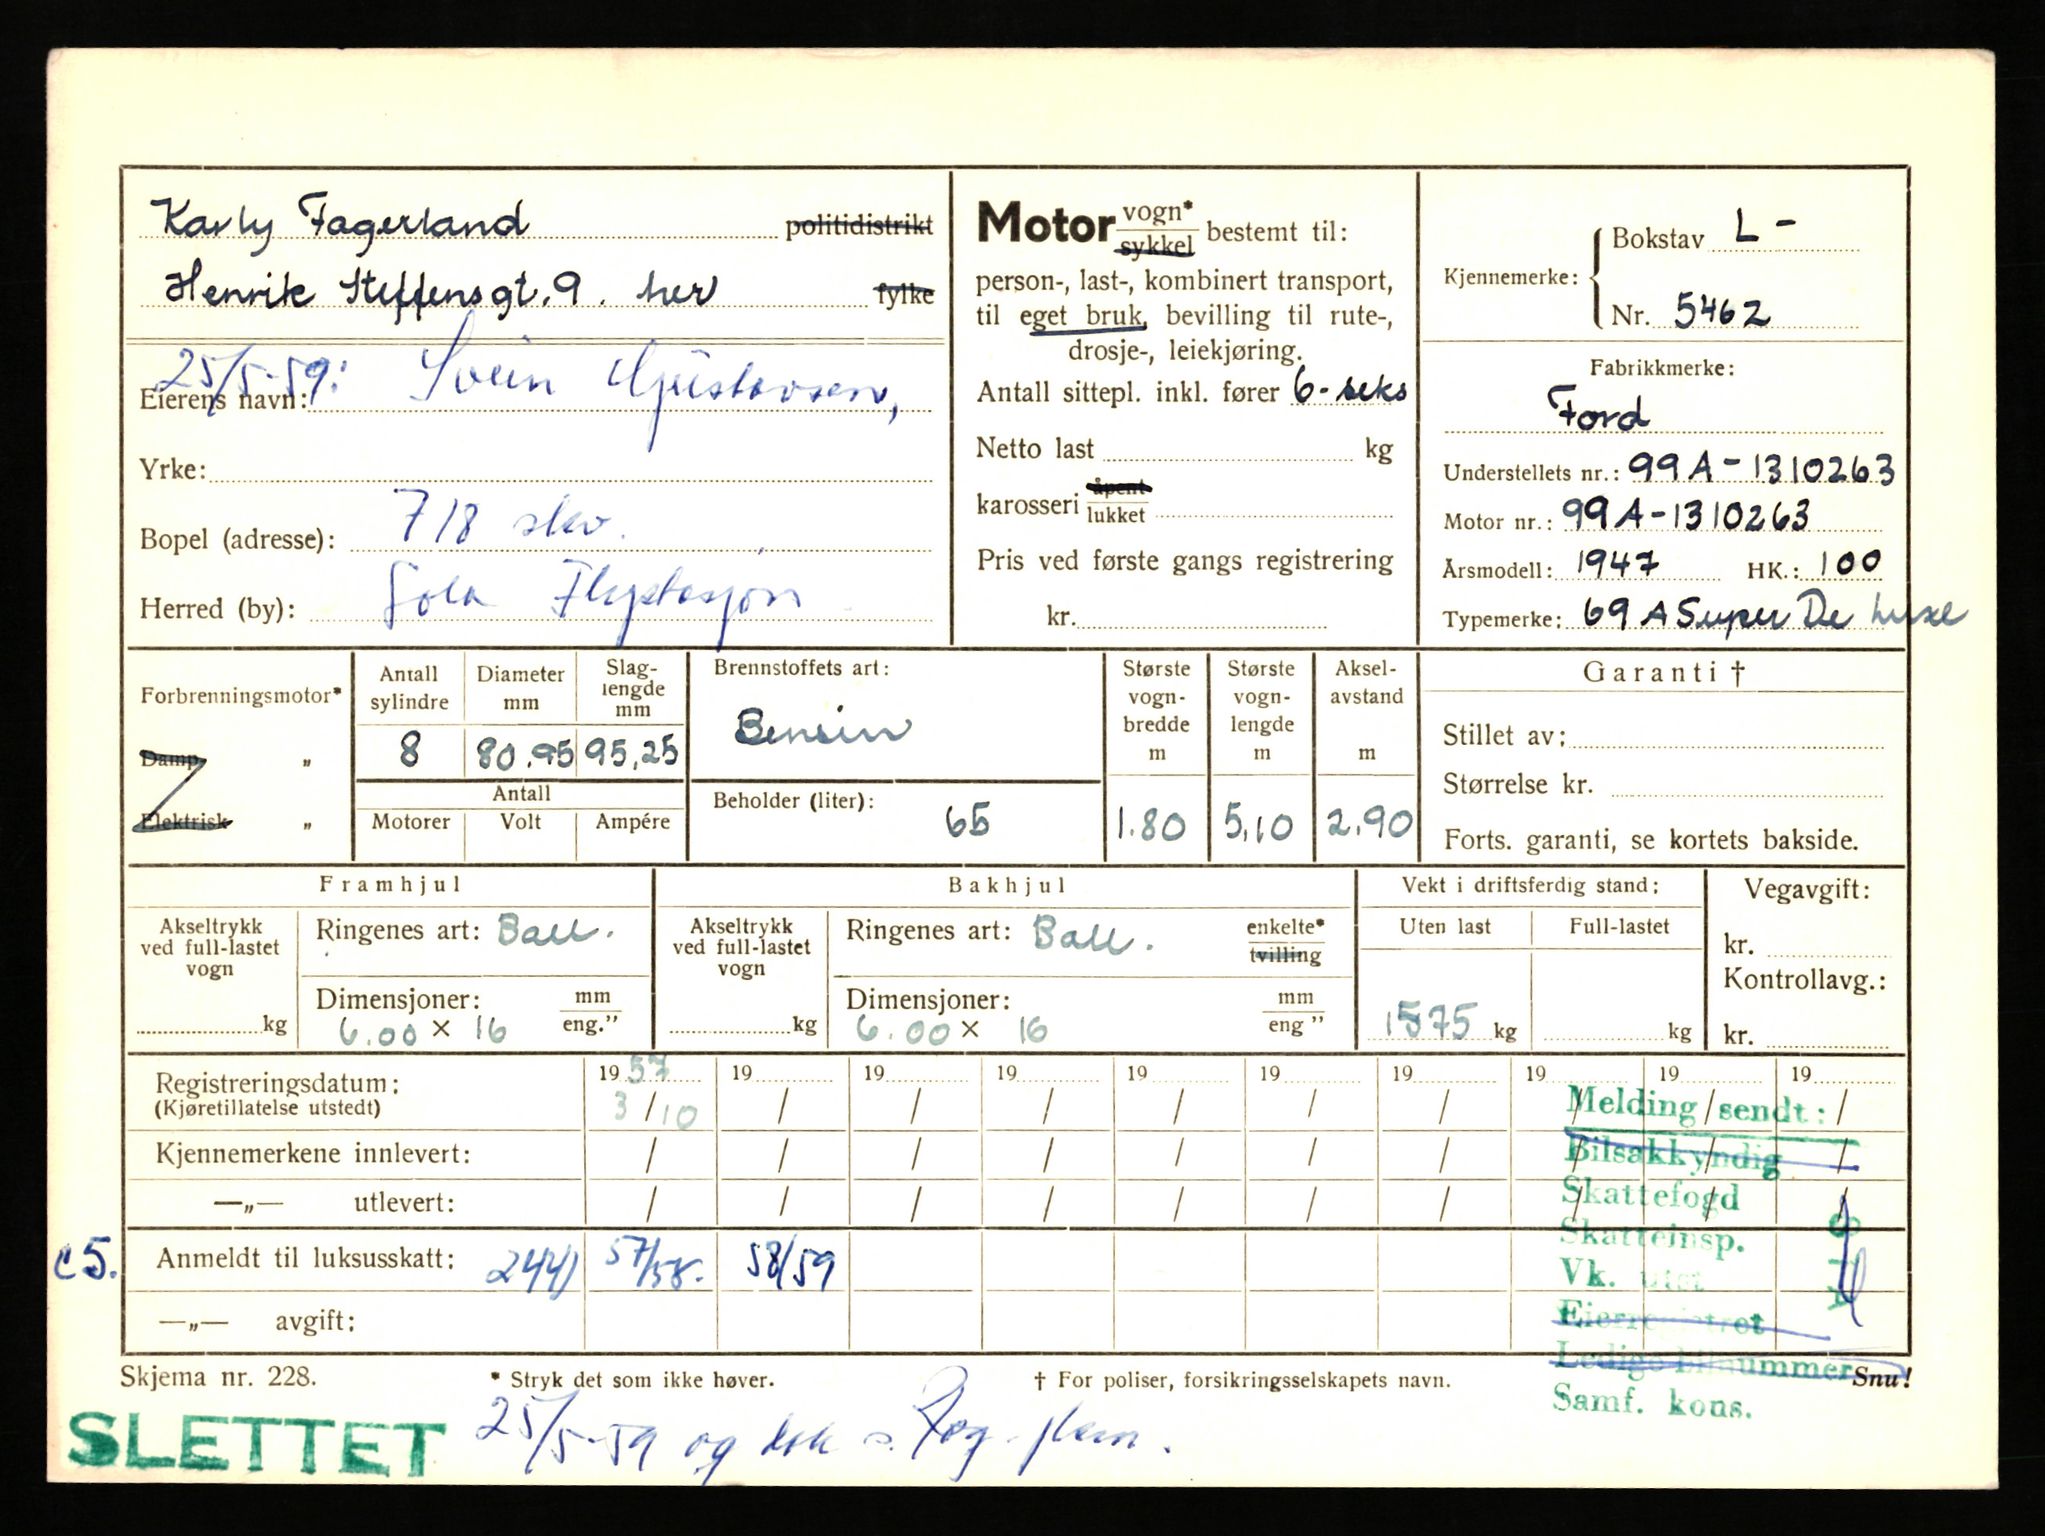 Karly Fagerland politidistrikt
Henrik Steffensgt. 9. her fylke
25/5-59: Svein Gjustavsen,
Eierens navn:
Yrke:
718 skv.
Bopel (adresse):
Sola Flystasjon
Herred (by):
Motor vogn* sykkel bestemt til:
person-, last-, kombinert transport,
til eget bruk, bevilling til rute-,
drosje-, leiekjøring.
Antall sittepl. inkl. fører 6-seks
Netto last kg
karosseri åpent lukket
Pris ved første gangs registrering
kr.
Kjennemerke: Bokstav L -
Nr. 5462
Fabrikkmerke:
Ford
Understellets nr.: 99A-1310263
Motor nr.: 99A-1310263
Årsmodell: 1947 HK.: 100
Typemerke: 69 A Super De Luxe
Forbrenningsmotor*
Damp "
Elektrisk "
Antall sylindre Diameter mm Slaglengde mm
8 80.95 95,25
Antall
Motorer Volt Ampére
Brennstoffets art:
Bensin
Beholder (liter): 65
Største vognbredde m Største vognlengde m Akselavstand m
1.80 5,10 2.90
Garanti †
Stillet av:
Størrelse kr.
Forts. garanti, se kortets bakside.
Framhjul
Akseltrykk ved full-lastet vogn kg
Ringenes art: Ball.
Dimensjoner: mm eng."
6.00 x 16
Bakhjul
Akseltrykk ved full-lastet vogn kg
Ringenes art: Ball. enkelte* tvilling
Dimensjoner: mm eng "
6.00 x 16
Vekt i driftsferdig stand:
Uten last Full-lastet
1575 kg kg
Vegavgift:
kr.
Kontrollavg.:
kr.
Registreringsdatum: 1957 19 19 19 19 19 19 19 19 19
(Kjøretillatelse utstedt) 3/10 / / / / / / / / /
Kjennemerkene innlevert: / / / / / / / / / /
—„— utlevert: / / / / / / / / / /
c5. Anmeldt til luksusskatt: 2441 57/58. 58/59
—„— avgift:
Melding sendt:
Bilsakkyndig
Skattefogd
Skatteinsp.
Vk. utst
Eierregistret
Ledige bilnummer
Samf. kons.
Skjema nr. 228. * Stryk det som ikke høver. † For poliser, forsikringsselskapets navn. Snu!
SLETTET 25/5-59 og